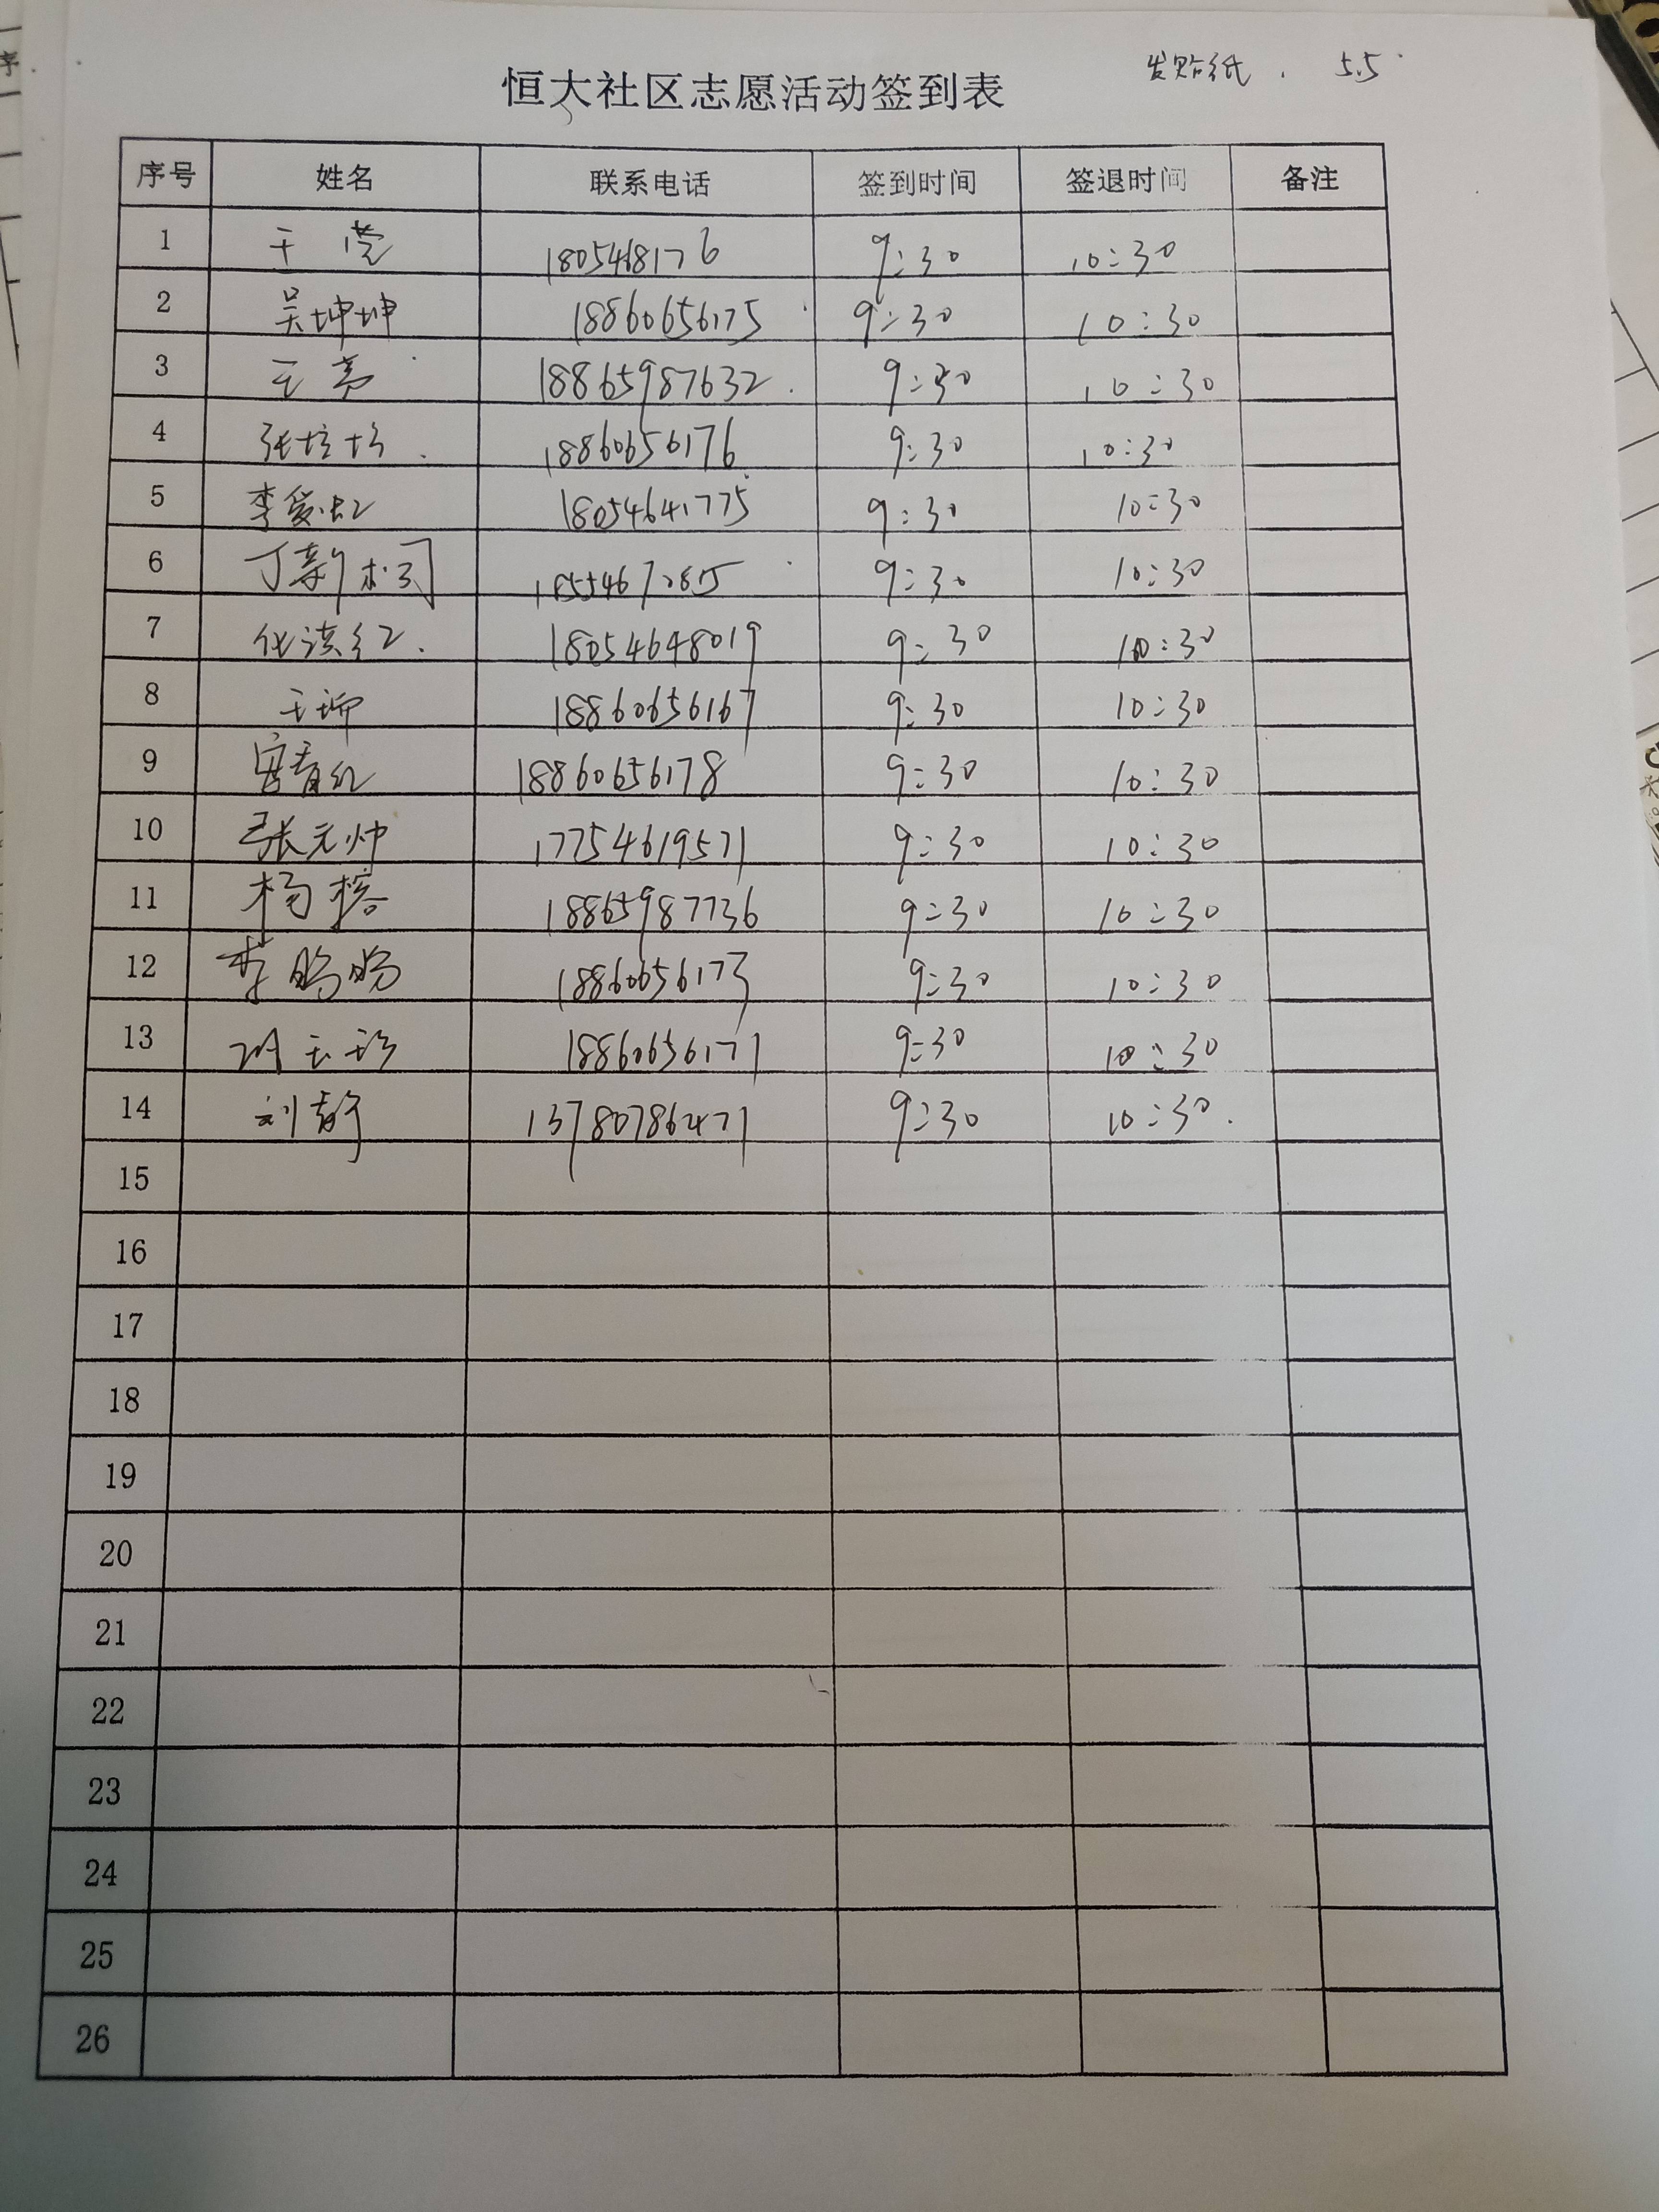 发贴纸 . 5.5
恒大社区志愿活动签到表
序号 姓名 联系电话 签到时间 签退时间 备注
1 9:30 10:30
2 吴坤坤 18860656175 9:30 10:30
3 王亮 18865987632 9:30 10:30
4 18860656176 9:30 10:30
5 李爱红 18054641775 9:30 10:30
6 9:30 10:30
7 18054648019 9:30 10:30
8 18860656167 9:30 10:30
9 18860656178 9:30 10:30
10 张元帅 17754619571 9:30 10:30
11 杨榕 18865987736 9:30 10:30
12 18860656173 9:30 10:30
13 18860656171 9:30 10:30
14 刘静 13780786471 9:30 10:30
15
16
17
18
19
20
21
22
23
24
25
26